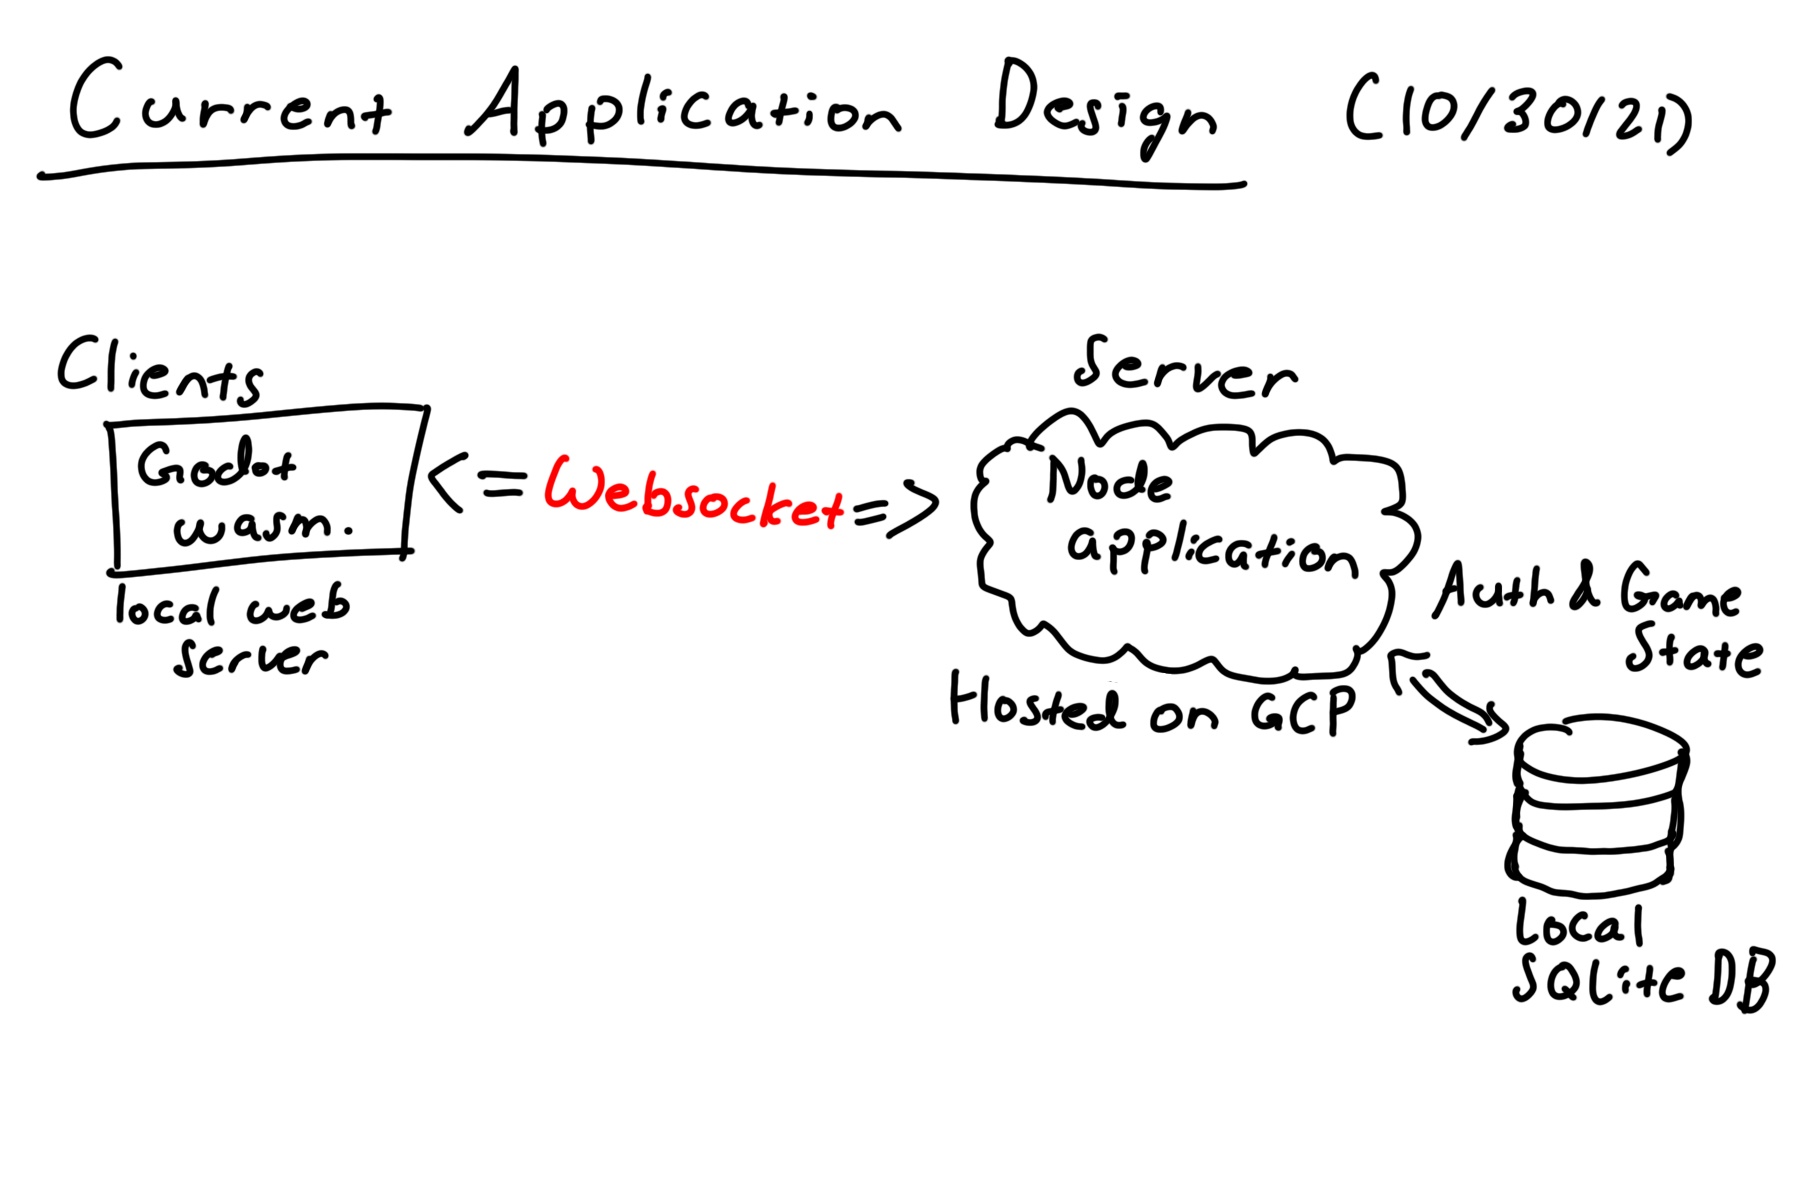 Current Application Design (10/30/21)
Clients
Godot
wasm.
local web
server
<= Websocket =>
Server
Node
application
Hosted on GCP
Auth & Game
State
Local
SQLite DB